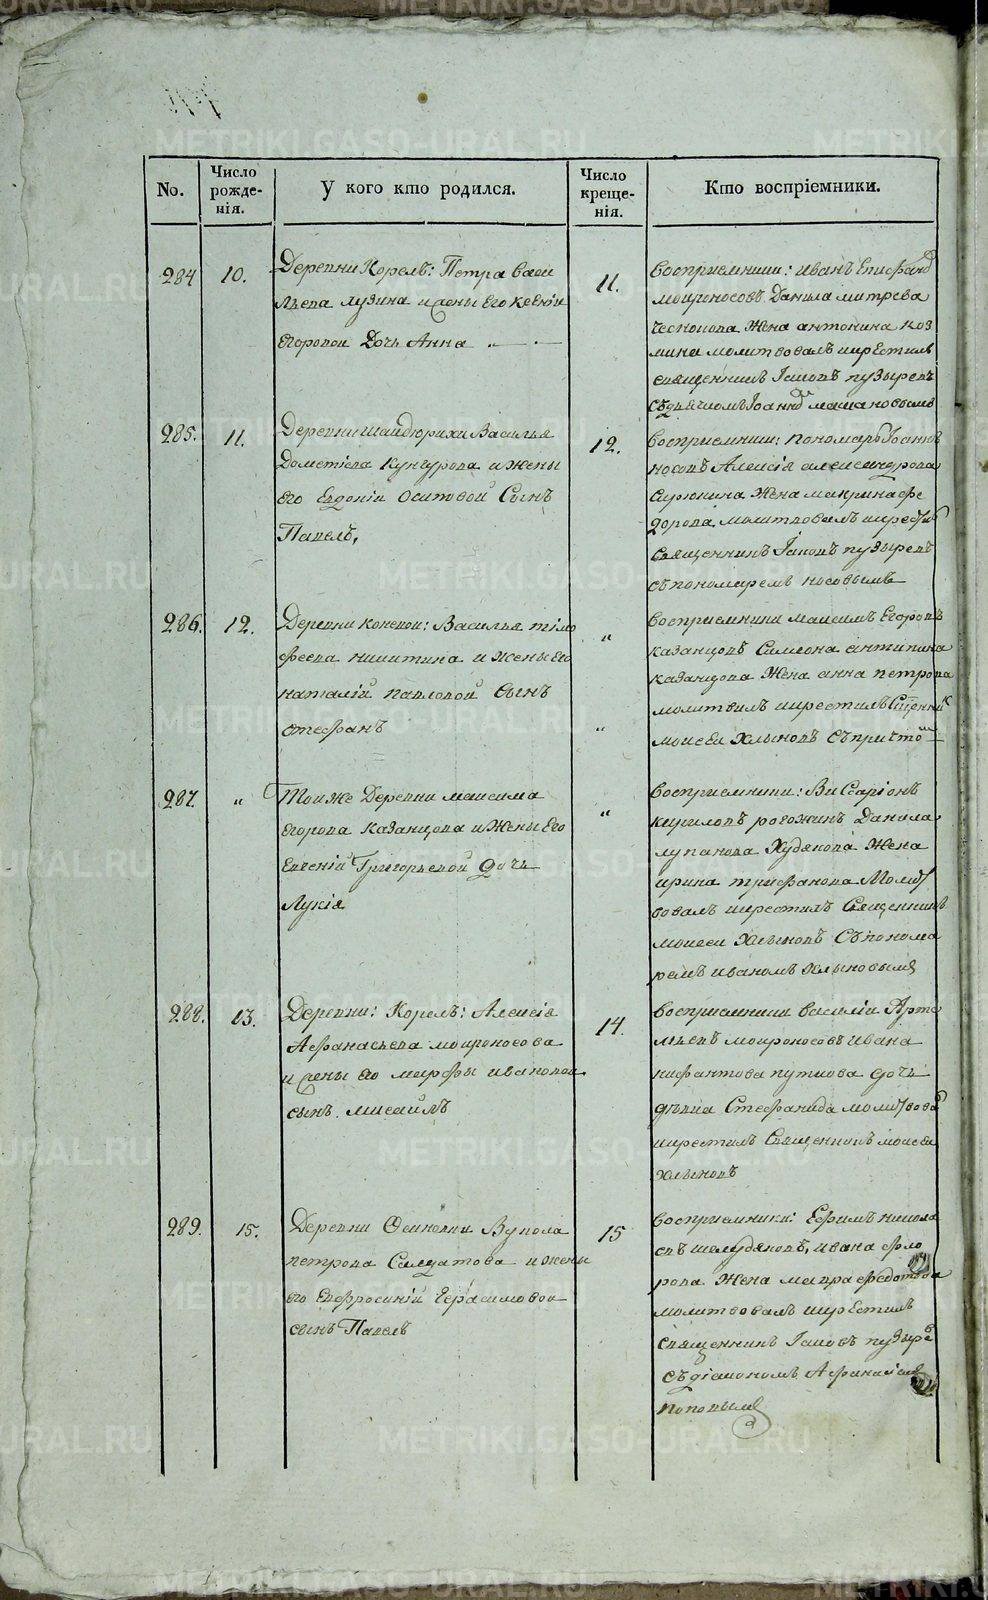 METRIKI.GASO-URAL.RU
No.
Число рожде-
нія.
У кого кто родился.
Число креще-
нія.
Кто воспріемники.
284
10.
Деревни Корелъ: Петра Васи
льева лузина и жены Его Ксеніи
Егоровой Дочь Анна
11.
Восприемники: Иванъ
мокроносовъ Данила митрева
чеснокова Жена антонина коз
мина молитвовалъ икрестилъ
священникъ Іаковъ пузыревъ
285.
11.
Деревни Василья
Дометіева Кунгурова и жены
его Евдокіи Осиповой Сынъ
Павелъ,
12.
Восприемники: Пономарь Іоаннъ
носовъ Алексія александрова
Жена макрина фе
дорова, молитвовалъ икрестилъ
Священникъ Іаковъ пузыревъ
съпономаремъ носовымъ
286.
12.
Деревни коневой: Василья тімо
феева никитина и жены Его
наталіи павловой Сынъ
стефанъ
"
"
Восприемники максимъ Егоровъ
казанцовъ Симеона антипина
казанцова Жена анна петрова
икрестилъ
моисей Хлыновъ съпричто
287.
"
Тойже Деревни максима
Егорова казанцова и Жены Его
Евгеніи Григорьевой дочь
Лукія
"
Восприемники: Висаріонъ
кириловъ рогожинъ Данила
лупанова Худякова Жена
ирина трифанова
вовалъ икрестилъ Священникъ
моисей Хлыновъ Съпонома
ремъ иваномъ Хлыновымъ
288.
13.
Деревни: Корелъ: Алексія
Афанасьева мокроносова
и жены Его марфы ивановой
сынъ. мисаилъ
14.
Восприемники василіи
мокроносовъ ивана
нифантова путкова дочь
дѣвка Стефанида
икрестилъ Священникъ моисей
хлыновъ
289.
15.
Деревни Осиновки Вукола
петрова Салдатова и жены
его Евфросиніи Герасимовой
сынъ Павелъ
15
Восприемники: Ефимъ никола
евъ шелудяковъ, ивана фло
рова Жена мавра федотова
молитвовалъ икрестилъ
священникъ Іаковъ
съдіакономъ Афанасіемъ
поповымъ